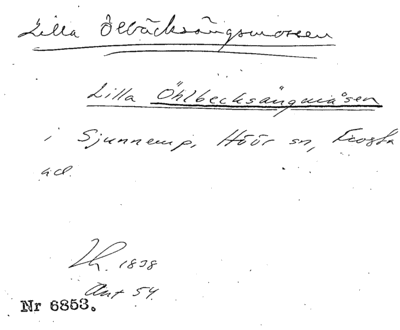 Lilla Ölbäcksängsmossen
Lilla Öhlbecksängmåsen
i Sjunnerup, Höör sn, Frosta
hd.
Lh. 1838
Akt 54.
Nr 6853.